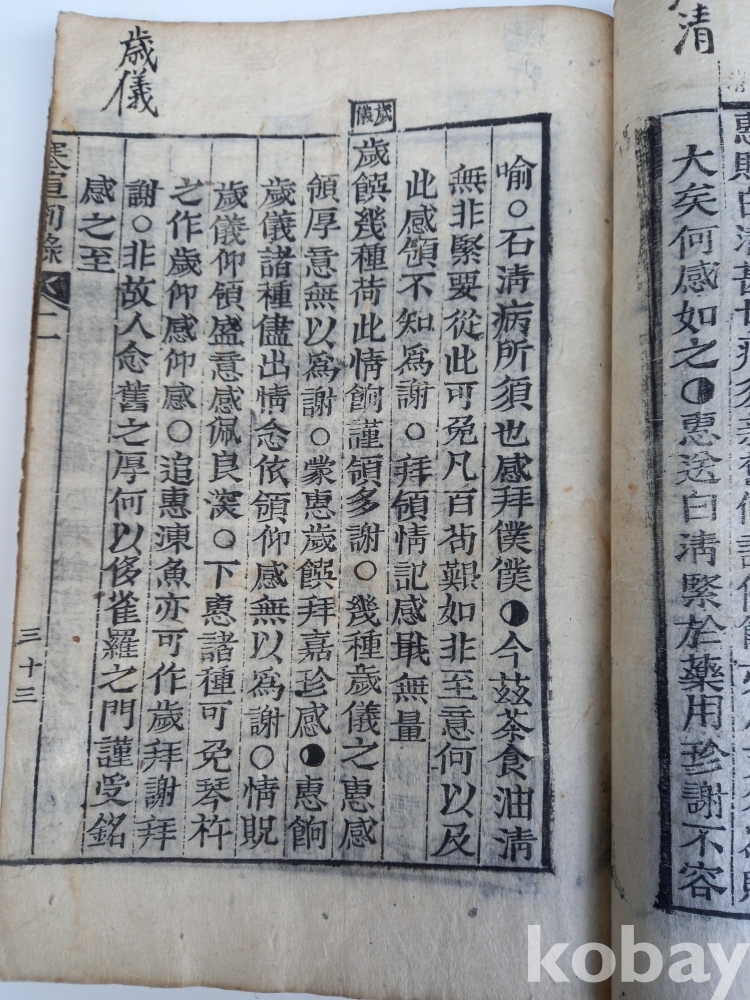 清
大矣何感如之◗惠送白淸緊於藥用珍謝不容
歲儀
歲儀
喻○石淸病所須也感拜僕僕◗今玆茶食油淸
無非緊要從此可免凡百苟艱如非至意何以及
此感領不知爲謝○拜領情記感戢無量
歲饌幾種荷此情餉謹領多謝○幾種歲儀之惠感
領厚意無以爲謝○蒙惠歲饌拜嘉珍感◗惠餉
歲儀諸種儘出情念依領仰感無以爲謝○情貺
歲儀仰領盛意感佩良深○下惠諸種可免琴杵
之作歲仰感仰感○追惠凍魚亦可作歲拜謝拜
謝○非故人念舊之厚何以侈雀羅之門謹受銘
感之至
寒暄箚錄 二
三十三
kobay